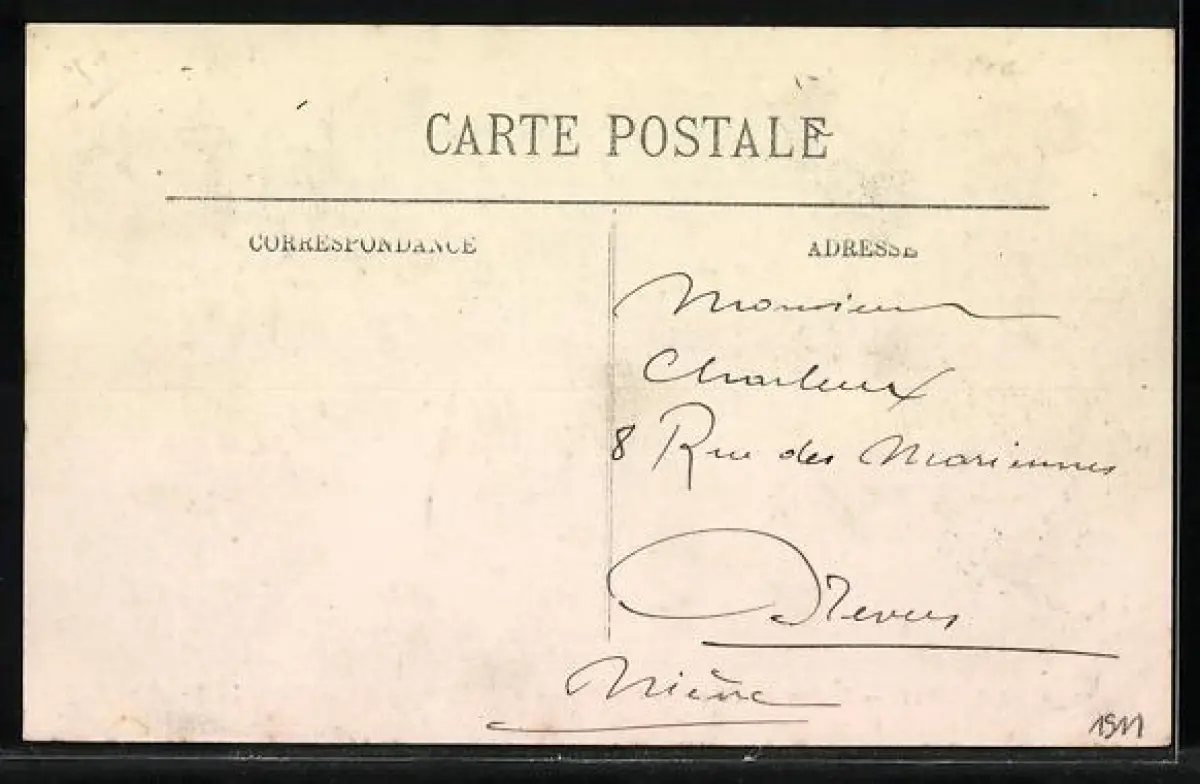 CARTE POSTALE
CORRESPONDANCE
ADRESSE
Monsieur
Charleux
8 Rue des Mariennes
Nevers
Nièvre
1911